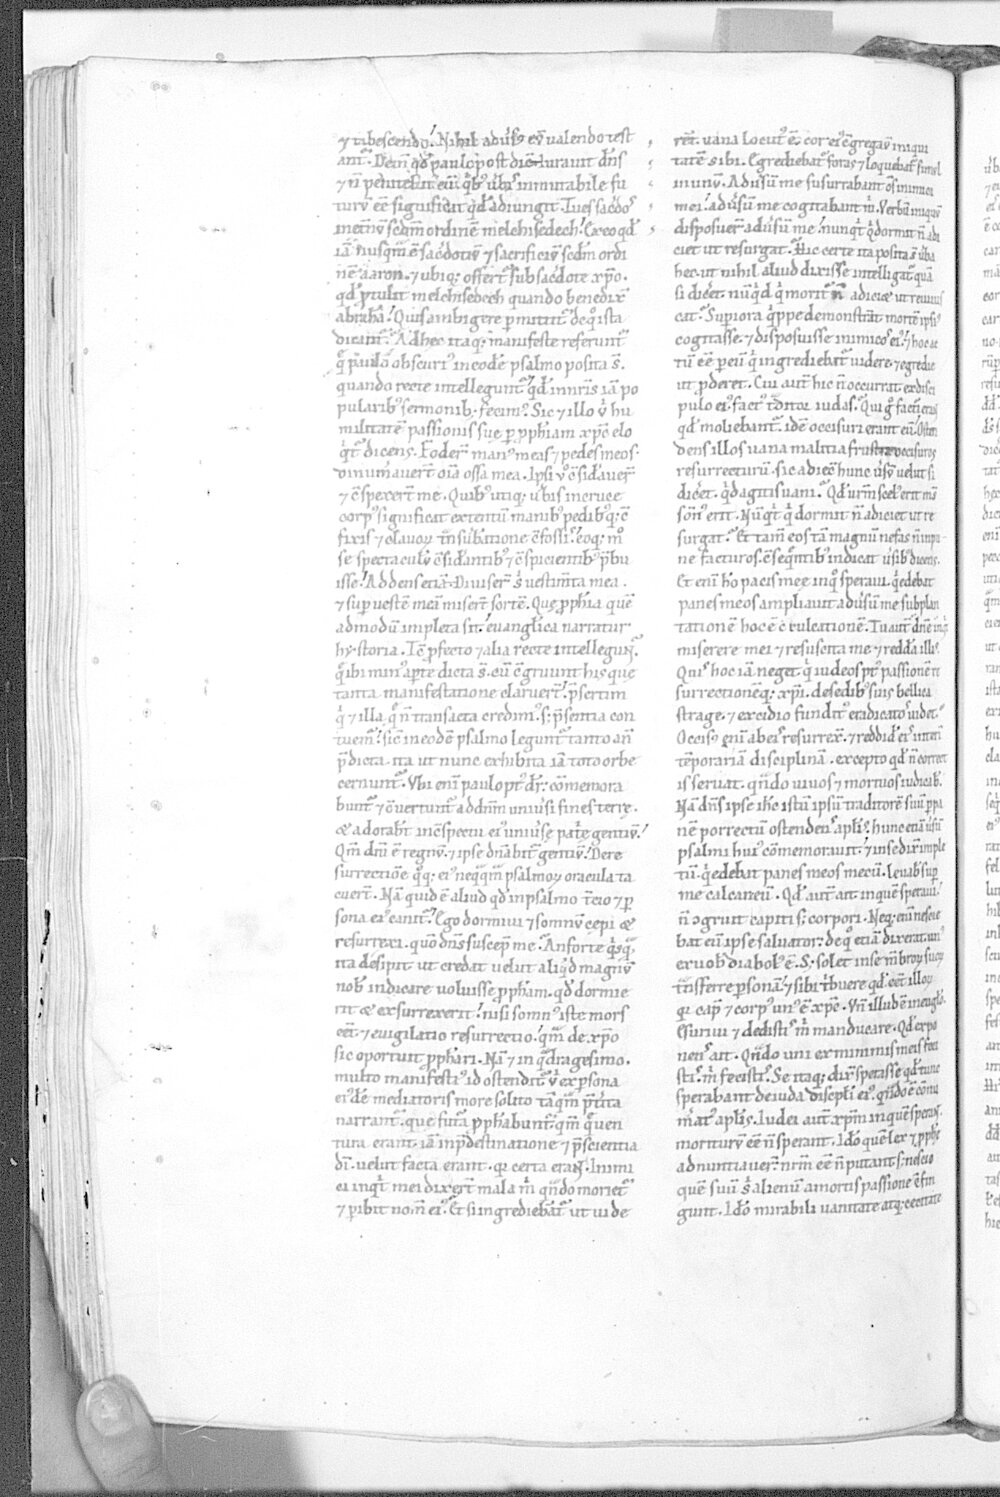 ⁊ tabescendo. Nihil adusꝰ eū ualendo test
ant͛. Deinde qd̓ paulo post dic̄. Iurauit dn̄s
⁊ n̄ penitebit eū. q̓bꝰ ūbis inmutabile fu
turū ēē significat qd̓ adiungit. Tu es sacdos
inetn̄ū scdm̄ ordinē melchisedech. Ex eo qd̓
iā nusq̄m ē sacdotiū ⁊ sacrificiū scdm̄ ordi
nē aaron. ⁊ ubiq; offert͛ sub sacdote xp̄o.
qd̓ ptulit melchisedech quando benedix̄
abrahā. Quis ambigere pmittit͛ de q̓ ista
dicant͛. Ad hec itaq; manifesta referunt͛
q̄ paulo obscuriꝰ in eodē psalmo posita s̄.
quando recte intellegunt͛. qd̓ in nr̄is iā po
pularibꝰ sermonib; fecimꝰ. Sic ⁊ illo ū hu
militatē passionis sue p pph̄iam xp̄c elo
q̓t͛ dicens. Foder̄ manꝰ meas ⁊ pedes meos.
dinumeauer̄t om̄ia ossa mea. Ipsi ū c̄sidauer̄
⁊ c̄spexer̄t me. Quibꝰ utiq; ūbis in cruce
corpꝰ significat extentū manibꝰ pedibꝰq; c̄
fixis ⁊ clauoꝝ tn̄suerbatione c̄fossis. eoq; mº
se spectaculū c̄sidantibꝰ ⁊ c̄spicientibꝰ p̄bu
isse. Addens etiā. Diuiser̄ s̄ uestim̄ta mea.
⁊ sup uestē meā miser̄t sortē. Que pph̄ia quē
admodū impleta sit. euangelica narratur
hystoria. Tc̄ pfecto ⁊ alia recte intellegunt͛.
q̄ ibi minꝰ apte dicta s̄. cū c̄gruunt his que
tanta manifestatione claruer̄t. p̄sertim
q̓ ⁊ illa q̄ n̄ transacta credimꝰ. s; p̄sentia con
tuemur. sic̄ in eodē psalmo legunt͛ tanto an̄
p̄dicta. ita ut nunc exhibita iā toto orbe
cernunt͛. Vbi eni paulo pꝰ dr̄. cōmemora
bunt͛ ⁊ c̄uertunt͛ ad dn̄m uniusi fines terre.
⁊ adorabt̄ in c̄spectu eiꝰ uniuse patrie gentiū.
Qm̄ dn̄i ē regnū. ⁊ ipse dn̄abit͛ gentiū. De re
surrectiōe q̊q; eiꝰ neq̄q̄m psalmoꝝ oracula ta
cuer̄t. Nā quid ē aliud qd̓ in psalmo t̄cio ⁊ p
sona eiꝰ canit͛. Ego dormiui ⁊ somnū cepi ⁊
resurrexi. quō dn̄s suscep̄ me. An forte q̓sq̄
ita desipit ut credat uelut aliq̓d magnū
nob̄ indicare uoluisse pph̄am. qd̓ dormie
rit ⁊ exsurrexerit. nisi somnꝰ iste mors
eēt. ⁊ euigilatio resurrectio. qm̄ de xp̄o
sic oportuit pph̄ari. Nā ⁊ in q̄dragesimo.
multo manifestiꝰ id ostendit͛. ū ex psona
eiꝰdē mediatoris more solito tāq̄m p̄tita
narrant͛. que futa pph̄abunt͛. qm̄ q̄ uen
tura erant. iā in p̄destinatione ⁊ p̄scientia
dī. uelut facta erant. q̓ certa erant͛. Inimi
ci inq̓t mei dixer̄t mala m̄. qn̄do moriet͛
⁊ pibit nom̄ eiꝰ. Et si ingrediebat͛ ut uide
ret. uana locutꝰ ē. cor eiꝰ c̄gregauit iniqui
tatē sibi. Egrediebat͛ foras ⁊ loquebat͛ simul
in unū. Adusum me susurrabant om̄s inimici
mei. adusum me cogitabant m̄. Verbū iniquū
disposuer̄ adusum me. nunq̓t q̓ dormit n̄ adi
ciet ut resurgat. Hic certe ita posita s̄ uba
hec. ut nihil aliud dixisse intelligat͛ quā
si dicet. nūq̓d q̓ morit͛ n̄ adiciet ut reuiuis
cat. Supiora q̓ppe demonstrāt mortē ipsiꝰ
cogitasse. ⁊ disposuisse inimicos eiꝰ. ⁊ hoc ac
tū ēē p eū q̓ ingrediebat͛ uidere. ⁊ egredie
ut pderet. Cui aut̄ hic n̄ occurrat ex disci
pulo eiꝰ factꝰ t̄ditor iudas. Qui g̊ facturi erant
qd̓ moliebant͛. id ē occisuri erant eū. Osten
dens illos uana malitia frustra occisuros
resurrecturū. sic adiec̄ hunc usū uelut si
dicet. q̓d agitis uani. Qd̓ urm̄ scelꝰ erit mꝰ
sōnꝰ erit. Nūq̓t q̓ dormit n̄ adiciet ut re
surgat. Et tam̄ eos tā magnū nefas n̄ inpu
ne facturos. c̄seq̄ntibꝰ indicat usibꝰ dicens.
Et eni hō pacis mee in q̓ speraui. q̓ edebat
panes meos ampliauit adusum me subplan
tationē hoc ē c̄culcationē. Tu aut̄ dn̄e inq̓t
miserere mei ⁊ resuscita me ⁊ reddā illis.
Quis hoc iā neget q̓ iudeos pꝰ passionē re
surrectionēq; xp̄i. de sedibꝰ suis bellica
strage. ⁊ excidio funditꝰ eradicatos uidet.
Occisꝰ eni ab eis resurrex̄. ⁊ reddid̓ eis interī
tēporariā disciplinā. excepto qd̓ n̄ correct
is seruat. qn̄do uiuos ⁊ mortuos iudicab̄.
Nā dn̄s ipse ih̄c istū ipsū traditorē suū p pa
nē porrectū ostendens aplīs. hunc etiā usū
psalmi huiꝰ cōmemorauit. ⁊ in se dix̄ imple
tū. q̓ edebat panes meos mecū. leuab̄ sup
me calcaneū. Qd̓ aut̄ ait. in quē speraui.
n̄ ɔgruit capiti s; corpori. Neq; eni nescie
bat eū ipse saluator. de q̊ etiā dixerat. unꝰ
ex uob̄ diabolꝰ ē. S; solet in se m̄broꝝ suoꝝ
tn̄sferre psonā. ⁊ sibi t̓buere qd̓ eēt illoꝝ
q̓ cap̄ ⁊ corpꝰ unꝰ ē xp̄c. Vn̄ illud ē in eug̃lo.
Esuriui ⁊ dedistis m̄ manducare. Qd̓ expo
nens ait. Qn̄do uni ex minimis meis feci
stis. m̄ fecistis. Se itaq; dix̄ sperasse qd̓ tunc
sperabant de iuda discipli eiꝰ. qn̄do ē cōnu
m̄atꝰ aplīs. Iudei aut̄ xp̄m in quē sperant.
moriturū ēē n̄ sperant. Idō quē lex ⁊ pph̄e
adnuntiauer̄. nr̄m ēē n̄ putant s; nescio
quē suū s̄ alienū a mortis passione c̄fin
gunt. Idō mirabili uanitate atq; cecitate